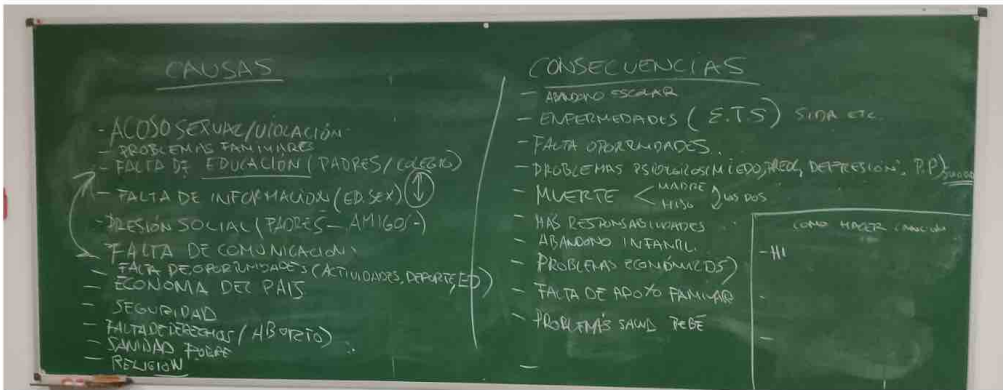 CAUSAS
- ACOSO SEXUAL/VIOLACIÓN
- PROBLEMAS FAMILIARES
- FALTA DE EDUCACIÓN (PADRES/COLEGIO)
- FALTA DE INFORMACIÓN (ED.SEX)
- PRESIÓN SOCIAL (PADRES - AMIGO/-)
- FALTA DE COMUNICACION
- FALTA DE OPORTUNIDADES (ACTIVIDADES, DEPORTE, ED)
- ECONOMA DEL PAIS
- SEGURIDAD
- FALTA DE DERECHOS (ABORTO)
- SANIDAD POBRE
- RELIGION
CONSECUENCIAS
- ABANDONO ESCOLAR
- ENFERMEDADES (E.T.S) SIDA ETC.
- FALTA OPORTUNIDADES.
- PROBLEMAS PSICOLOGICOS (MIEDO, DEPRESIÓN, P.P)
- MUERTE < MADRE HIJO LOS DOS
- MAS RESPONSABILIDADES
- ABANDONO INFANTIL
- PROBLEMAS ECONÓMICOS)
- FALTA DE APOYO FAMILIAR
- PROBLEMAS SALUD BEBE
-
COMO HACER CANCION
- HI
-
-